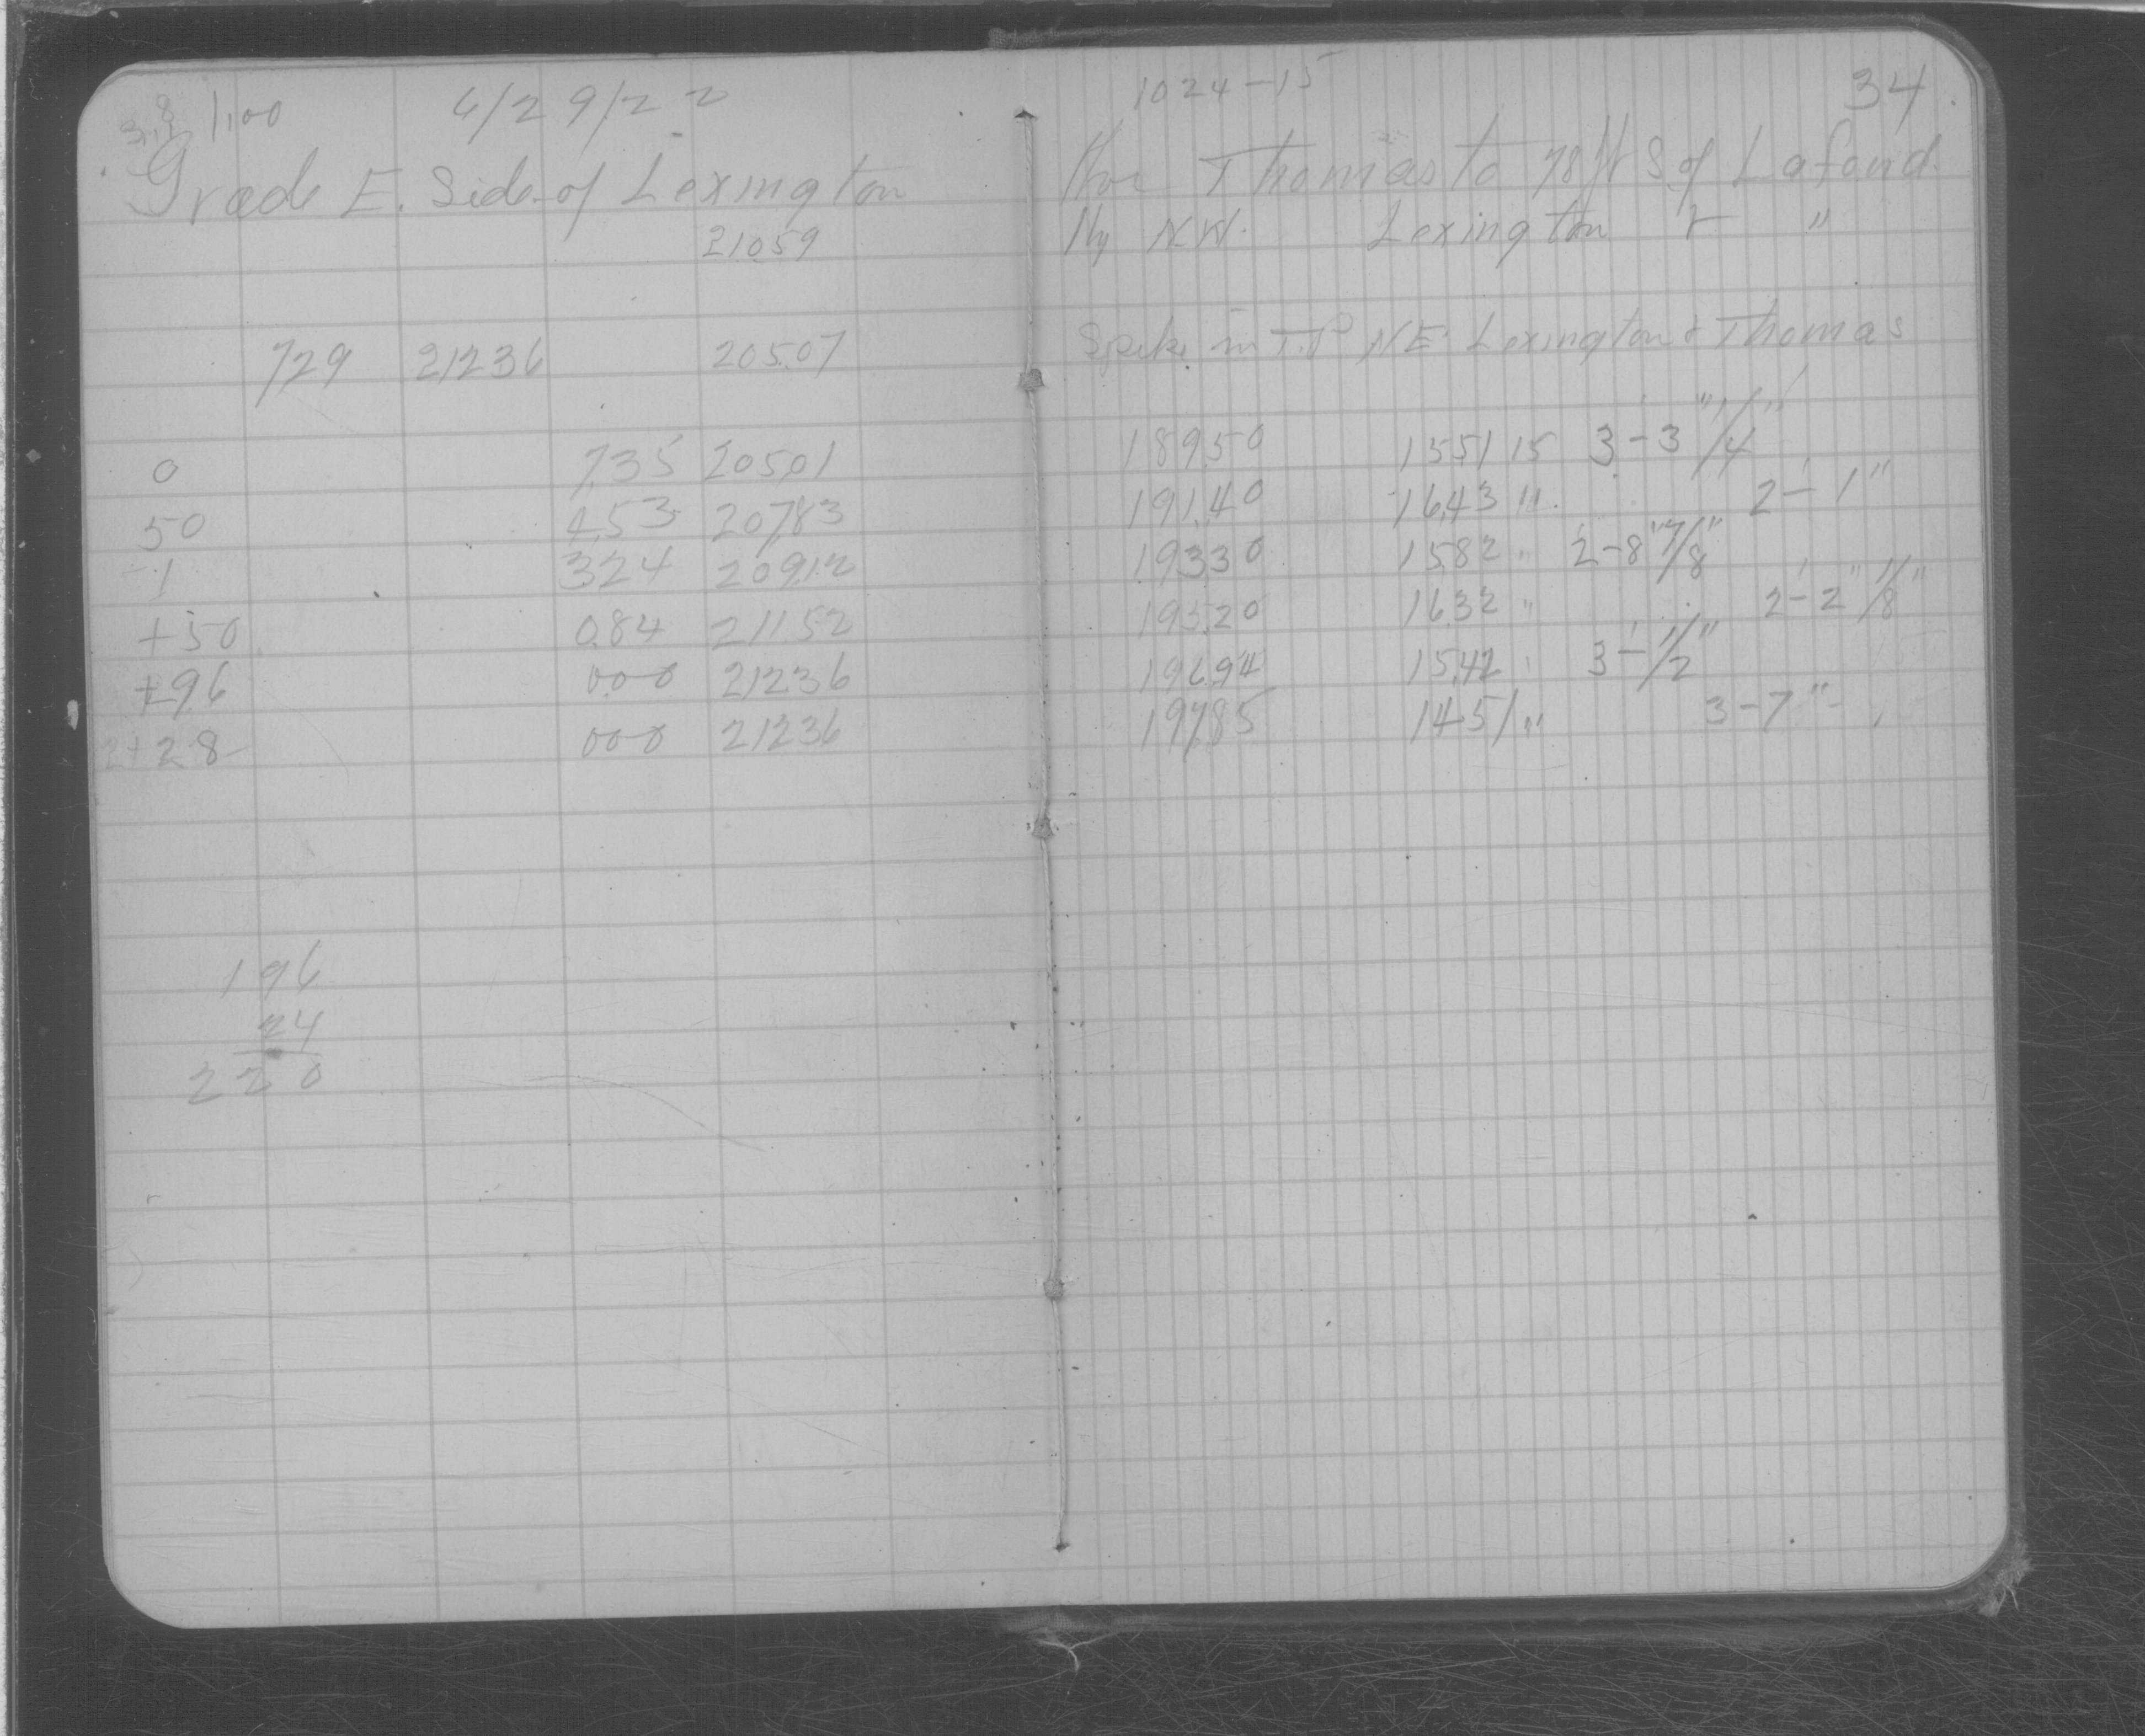 3.8 1.00 6/29/22
Grade E. Side of Lexington
21059
729 21236 20507
0 7.35 20501
50 4.53 20783
1 324 20912
+50 0.84 21152
+96 0.00 21236
2+28 0.00 21236
196
24
220
1024-15 34
Thomas to 78 ft S. of Lafond.
Hy N.W. Lexington & "
Spike in T.P. N.E. Lexington & Thomas
189.50 15.51 15 3'-3" 1/4"
191.40 16.43 " 2'-1"
193.30 15.82 " 2'-8" 7/8"
195.20 16.32 " 2'-2" 1/8"
196.94 15.42 " 3'-1/2"
197.85 14.51 " 3-7"